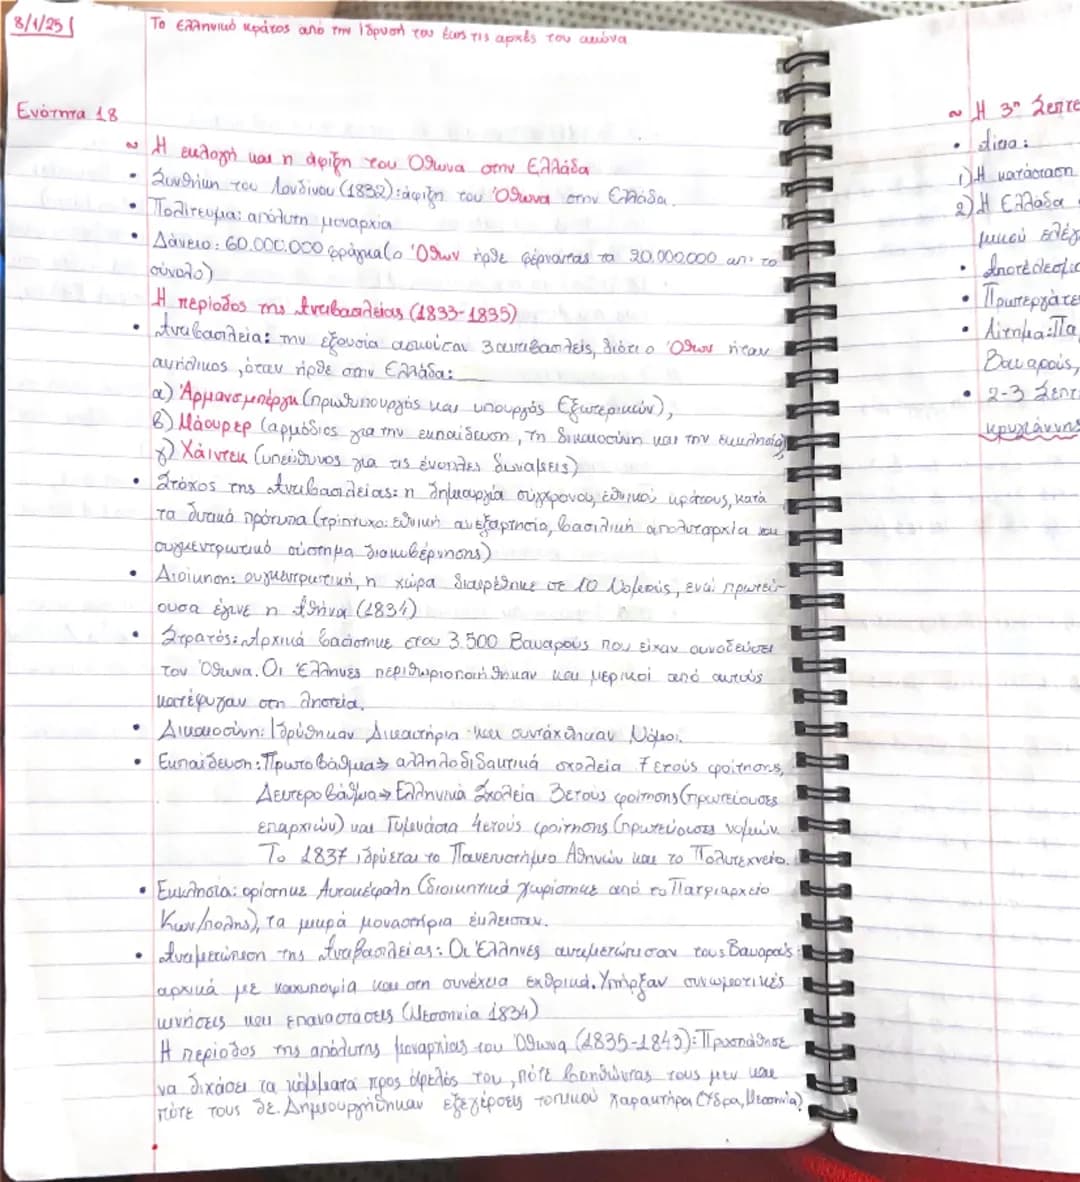 8/1/25
Το ελληνικό κράτος από την ίδρυσή του έως τις αρχές του αιώνα
Ενότητα 18
~ Η εκλογή και η άφιξη του Όθωνα στην Ελλάδα
• Συνθήκη του Λονδίνου (1832): άφιξη του Όθωνα στην Ελλάδα.
• Πολίτευμα: απόλυτη μοναρχία
• Δάνειο: 60.000.000 φράγκα (ο Όθων ήρθε φέρνοντας τα 20.000.000 απ' το
σύνολο)
Η περίοδος της Αντιβασιλείας (1833-1835)
• Αντιβασιλεία: την εξουσία ασκούσαν 3 αντιβασιλείς, διότι ο Όθων ήταν
ανήλικος, όταν ήρθε στην Ελλάδα:
α) Άρμανσμπεργκ (πρωθυπουργός και υπουργός Εξωτερικών),
β) Μάουρερ (αρμόδιος για την εκπαίδευση, τη δικαιοσύνη και την εκκλησία)
γ) Χάιντεκ (υπεύθυνος για τις ένοπλες δυνάμεις)
• Στόχος της Αντιβασιλείας: η δημιουργία σύγχρονου, εθνικού κράτους, κατά
τα δυτικά πρότυπα (τρίπτυχο: εθνική ανεξαρτησία, βασιλική απολυταρχία και
συγκεντρωτικό σύστημα διακυβέρνησης)
• Διοίκηση: συγκεντρωτική, η χώρα διαιρέθηκε σε 10 Νομούς, ενώ πρωτεύ-
ουσα έγινε η Αθήνα (1834)
• Στρατός: Αρχικά βασίστηκε στου 3.500 Βαυαρούς που είχαν συνοδεύσει
τον Όθωνα. Οι Έλληνες περιθωριοποιήθηκαν και μερικοί από αυτούς
κατέφυγαν στη ληστεία.
• Δικαιοσύνη: Ιδρύθηκαν Δικαστήρια και συντάχθηκαν Νόμοι.
• Εκπαίδευση: Πρωτοβάθμια → αλληλοδιδακτικά σχολεία 7ετούς φοίτησης,
Δευτεροβάθμια → Ελληνικά Σχολεία 3ετούς φοίτησης (πρωτεύουσες
επαρχιών) και Γυμνάσια 4ετούς φοίτησης (πρωτεύουσες νομών.
Το 1837 ιδρύεται το Πανεπιστήμιο Αθηνών και το Πολυτεχνείο.
• Εκκλησία: ορίστηκε Αυτοκέφαλη (διοικητικά χωρίστηκε από το Πατριαρχείο
Κων/πολης), τα μικρά μοναστήρια έκλεισαν.
• Αντιμετώπιση της Αντιβασιλείας: Οι Έλληνες αντιμετώπισαν τους Βαυαρούς
αρχικά με καχυποψία και στη συνέχεια εχθρικά. Υπήρξαν συνωμοτικές
κινήσεις και επαναστάσεις (Μεσσηνία 1834)
Η περίοδος της απόλυτης μοναρχίας του Όθωνα (1835-1843): Προσπάθησε
να διχάσει τα κόμματα προς όφελός του, πότε βοηθώντας τους μεν και
πότε τους δε. Δημιουργήθηκαν εξεγέρσεις τοπικού χαρακτήρα (Ύδρα, Μεσσηνία)
~ Η 3η Σεπτε
• Αίτια:
1) Η κατάσταση
2) Η Ελλάδα
ελέγ
• Αποτέλεσμα
• Πρωτεργάτε
• Αίτημα: Πα
Βαυαρούς,
• 2-3 Σεπτ